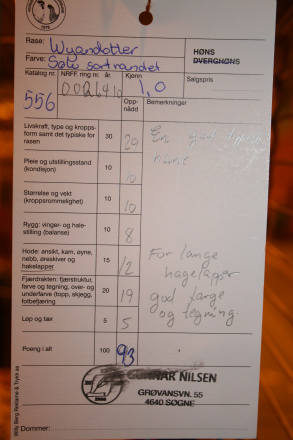 1976
Rase: Wyandotter
Farve: Sølv sortrandet
HØNS
DVERGHØNS
Katalog nr. NRFF. ring nr. år. Kjønn
Salgspris
556
1,0
Oppnådd
Bemerkninger
Livskraft, type og kropps-
form samt det typiske for
rasen
30
29
En god typisk
hane
Pleie og utstillingsstand
(kondisjon)
10
10
Størrelse og vekt
(kroppsrommelighet)
10
10
Rygg: vinger- og hale-
stilling (balanse)
10
8
Hode: ansikt, kam, øyne,
nebb, øreskiver og
hakelapper
15
12
For lange
hagelapper
Fjærdrakten: fjærstruktur,
farve og tegning, over- og
underfarve (topp, skjegg,
fotbefjæring
20
19
god farge
og tegning
Løp og tær
5
5
Poeng i alt
100
93
GUNNAR NILSEN
GRØVANSVN. 55
4640 SØGNE
Dommer:
Willy Berg Reklame & Trykk as